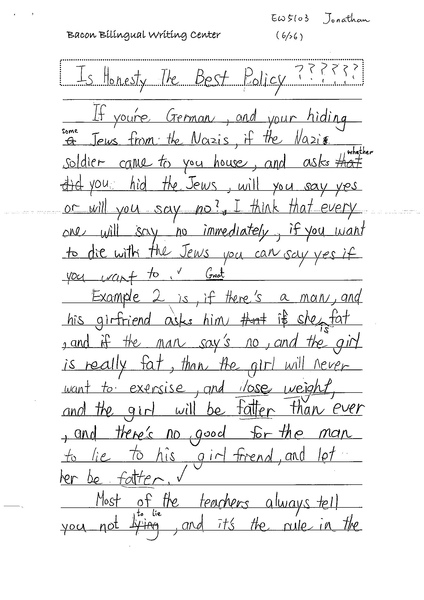 EW5103 Jonathan
Bacon Bilingual Writing Center
(6/26)
Is Honesty The Best Policy ??????
If you're German, and your hiding
some
a Jews from the Nazis, if the Nazis
whether
soldier came to you house, and asks that
did you hid the Jews, will you say yes
or will you say no?, I think that every
one will say no immediately, if you want
to die with the Jews you can say yes if
you want to. ✓ Great
Example 2 is, if there's a man, and
his girlfriend asks him that if she fat
is
, and if the man say's no, and the girl
is really fat, than the girl will never
want to exersise, and lose weight,
and the girl will be fatter than ever
, and there's no good for the man
to lie to his girl friend, and let
her be fatter. ✓
Most of the teachers always tell
to lie
you not lying, and it's the rule in the